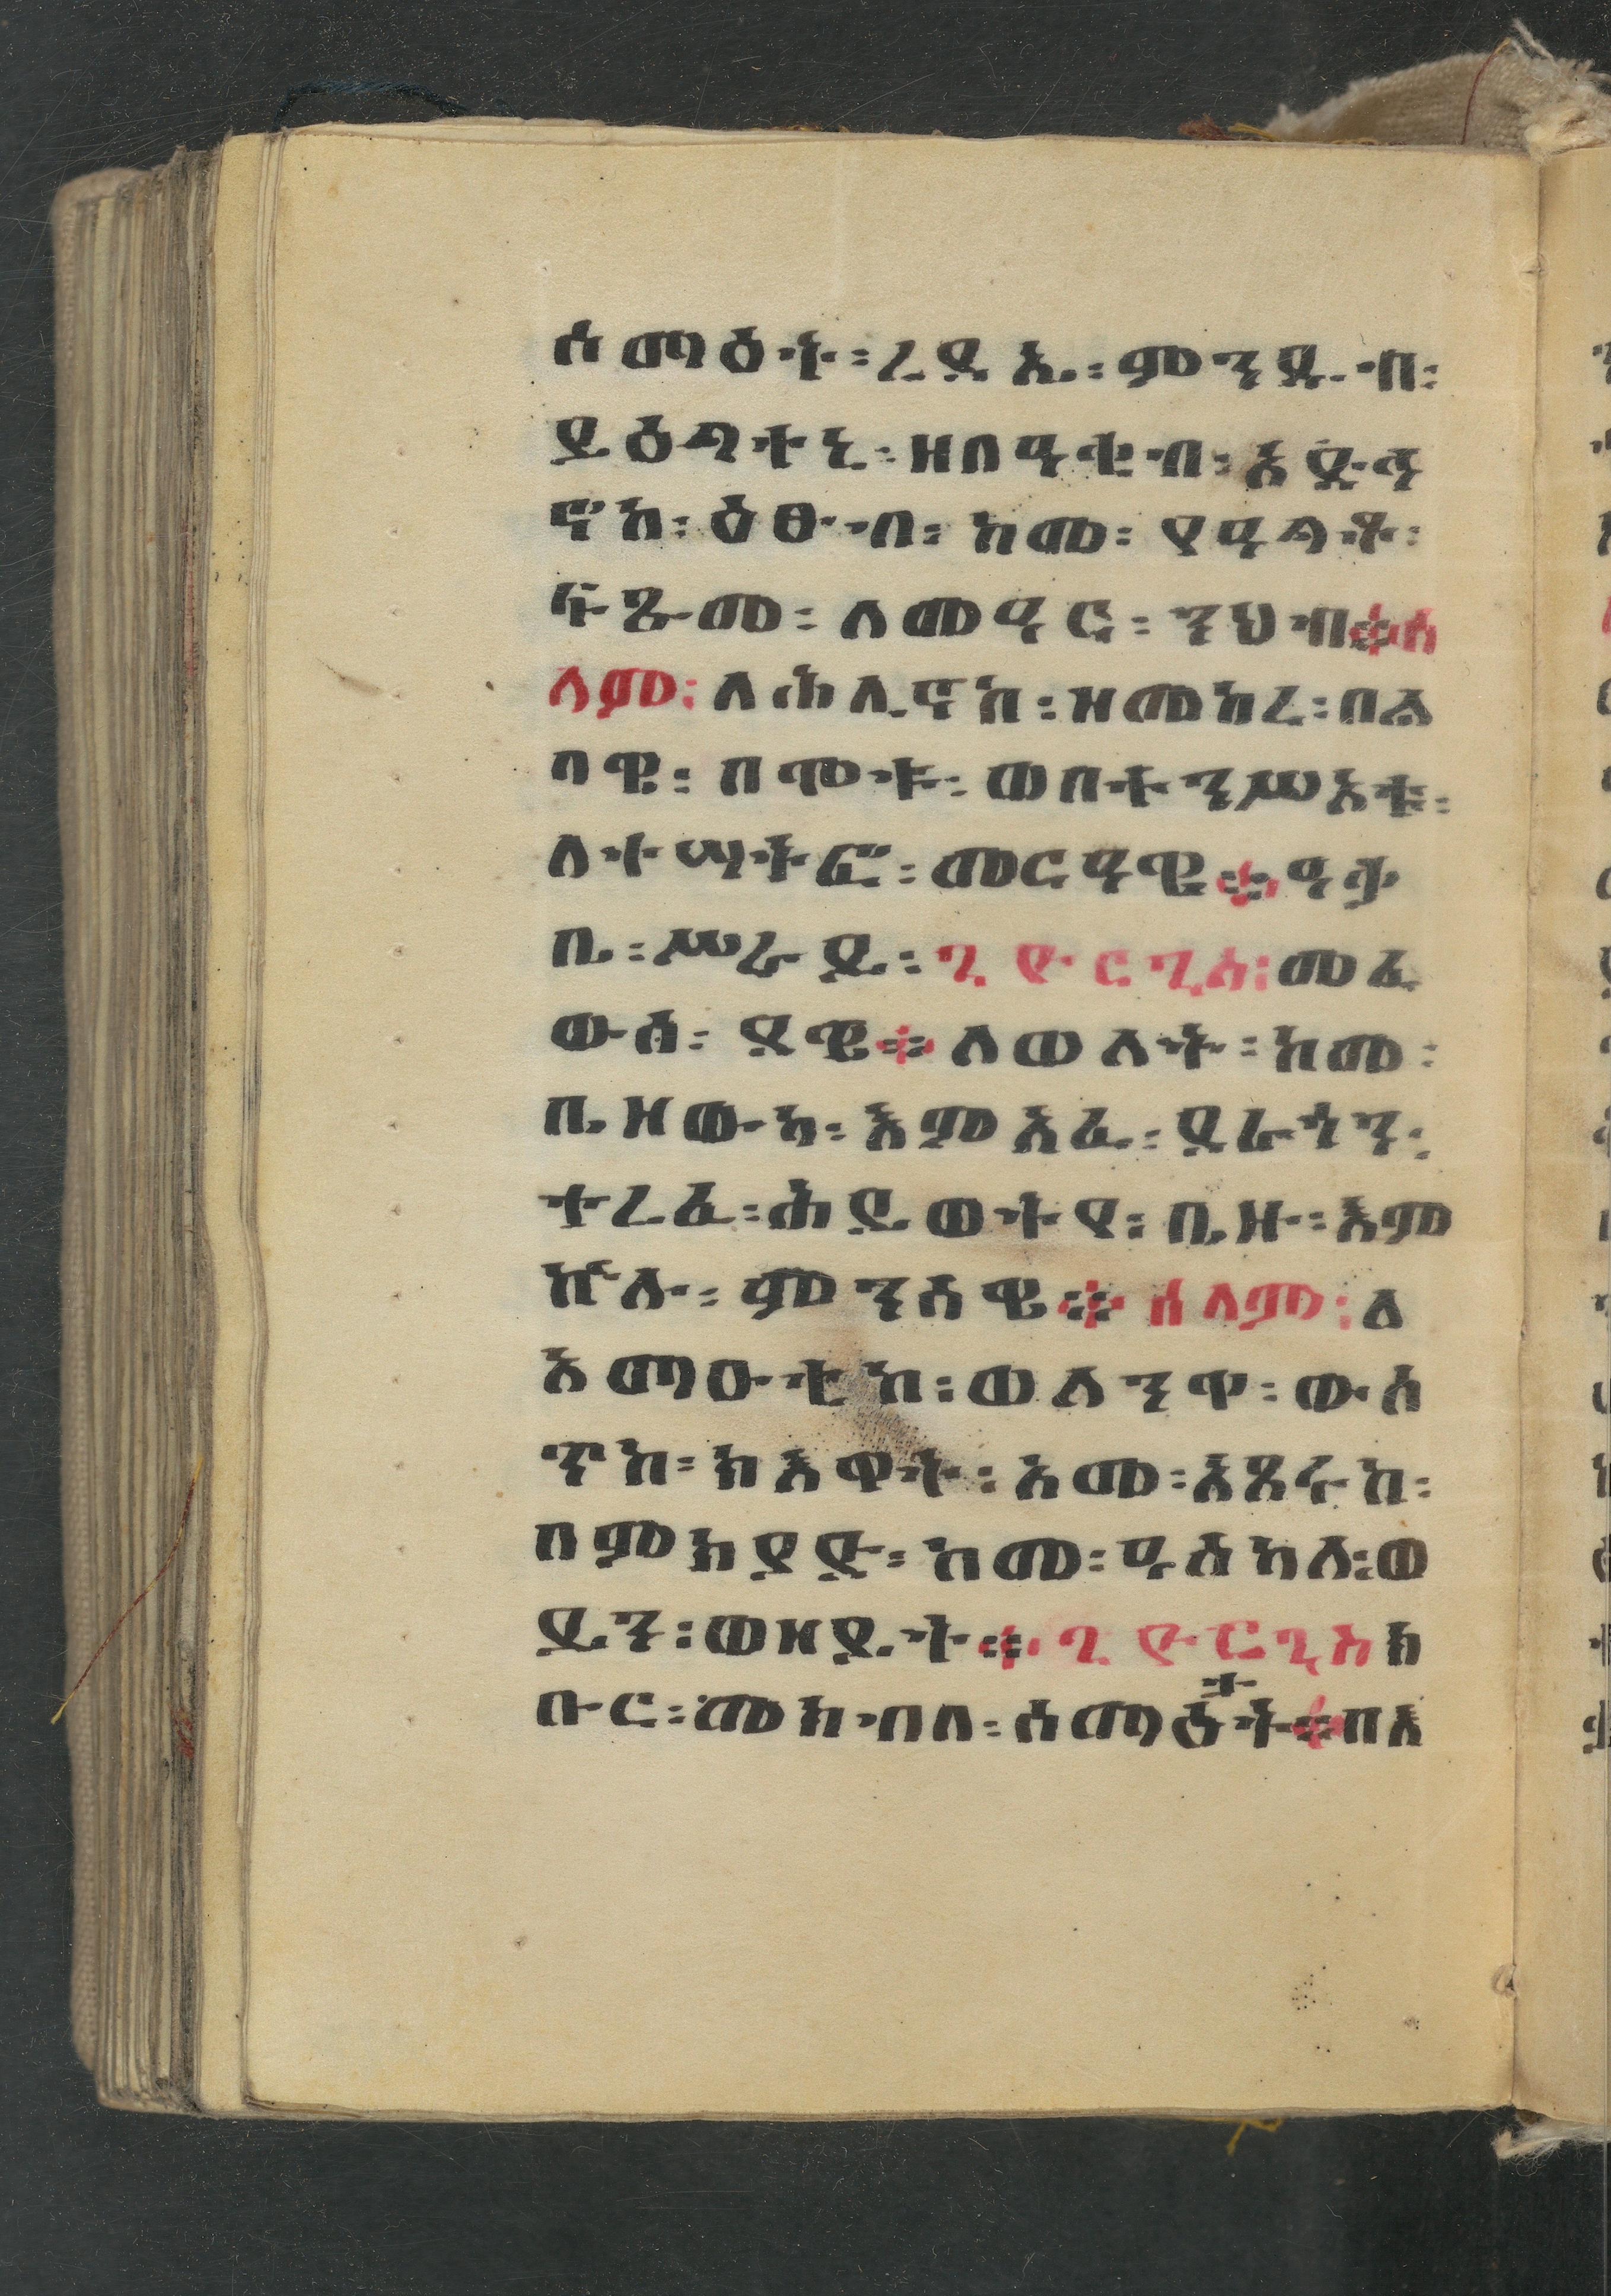 ሰማዕት፡ረድኤ፡ምንዱብ፡
ይዕጣተኒ፡ዘበዓቂብ፡እዴሃ
ኖከ፡ዕፀብ፡ከመ፡ያዓልቶ፡
ፍጹመ፡ለመዓር፡ንህብ፨ሰ
ላም፡ለሕሊናከ፡ዘመከረ፡በል
ባዌ፡በሞቱ፡ወበተንሥኡቱ፡
ለተሣትፎ፡መርዓዌ፨ዓቃ
ቤ፡ሥራይ፡ጊዮርጊስ፡መፈ
ውሰ፡ደዌ፨ለወለት፡ከመ፡
ቤዘውካ፡እምአፈ፡ደራጎን፡
ተረፈ፡ሕይወትየ፡ቤዙ፡እም
ኵሉ፡ምንሳዌ፨ሰላም፡ለ
አማዑቲከ፡ወለንዋ፡ውስ
ጥከ፡ክእዋት፡አመ፡አጸሩከ፡
በምክያድ፡ከመ፡ዓለካለ፡ወ
ይን፡ወዘይት፨ጊዮርጊስክ
ቡር፡መክብበ፡ሰማዕትት፨በእ